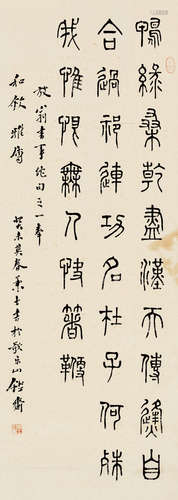 鴨綠桑乾盡漢天傳㷭自
合過祁連功名在子何殊
我惟恨無人快箸鞭
放翁書事絕句之一奉
和欽雅屬
癸未莫春書於歌樂山